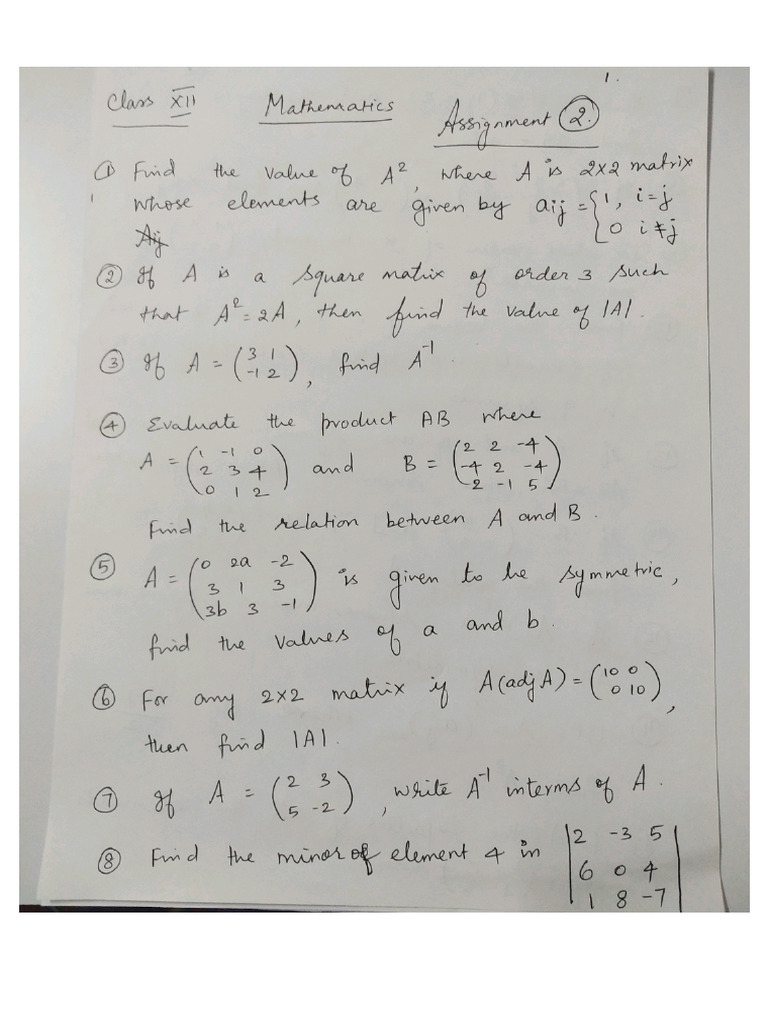 1.
Class XII Mathematics Assignment 2.
1 Find the value of A², where A is 2x2 matrix
whose elements are given by aij = { 1, i=j
0 i≠j
Aij
2 If A is a square matix of order 3 such
that A² = 2A, then find the value of |A|.
3 If A = (3 1
-1 2), find A⁻¹.
4 Evaluate the product AB where
A = (1 -1 0
2 3 4
0 1 2) and B = (2 2 -4
-4 2 -4
2 -1 5)
Find the relation between A and B.
5 A = (0 2a -2
3 1 3
3b 3 -1) is given to be symmetric,
find the values of a and b.
6 For any 2x2 matrix if A(adj A) = (10 0
0 10),
then find |A|.
7 If A = (2 3
5 -2), write A⁻¹ interms of A.
8 Find the minor of element 4 in |2 -3 5
6 0 4
1 8 -7|